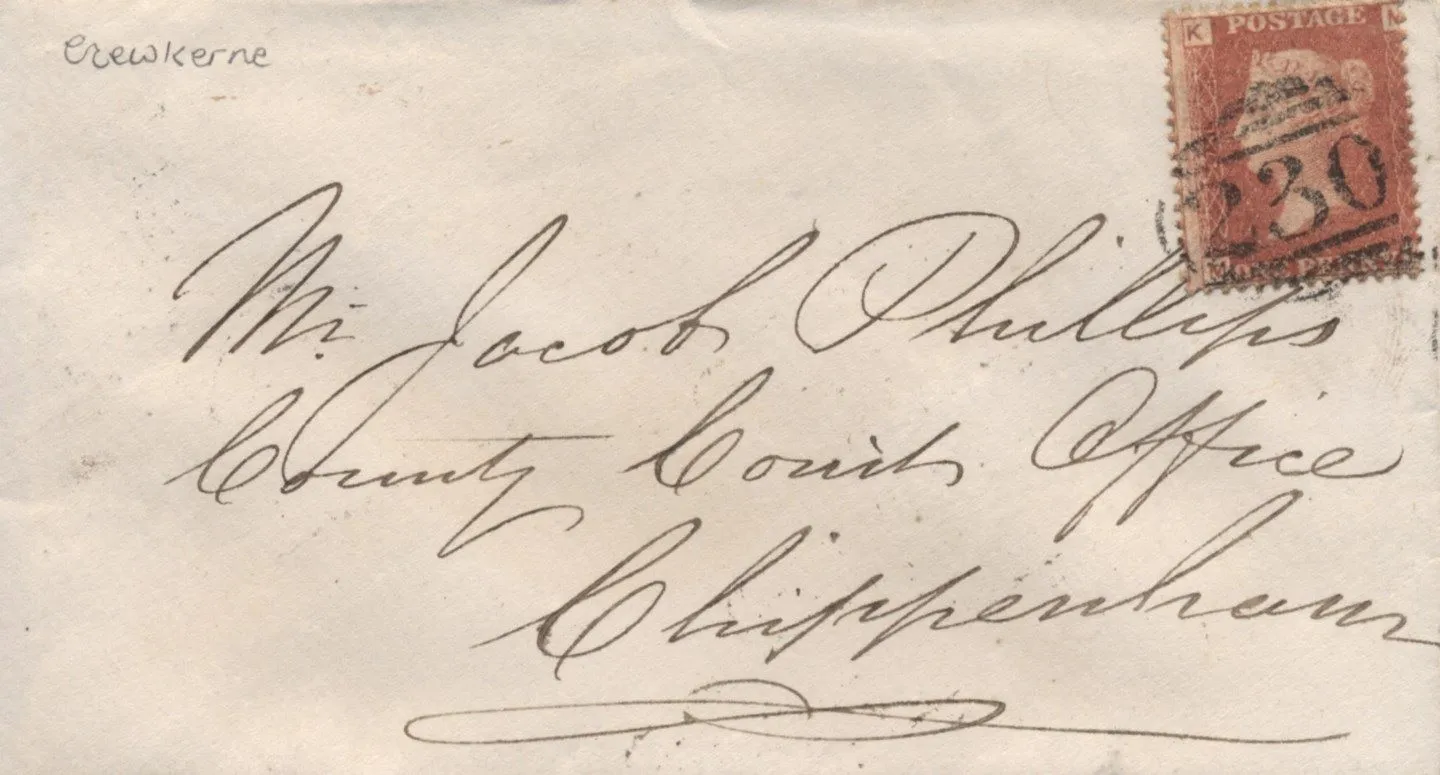 Crewkerne
K POSTAGE
230
M ONE PENNY
Mr. Jacob Phillips
County Court Office
Chippenham